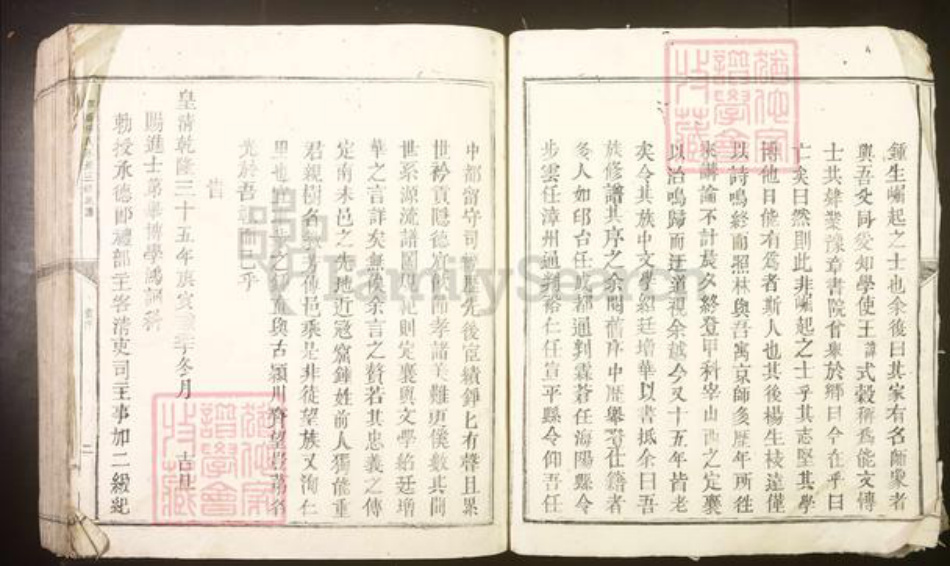 鍾生崛起之士也余後曰其家有名師象者
與吾爻同愛知學使王諱式穀稱為能文傳
士共肄業豫章書院曾舉於鄉曰今在乎曰
亡矣曰然則此非崛起之士乎其志堅其學
博他日能有為者斯人也其後楊生棱遠僅
以詩鳴終而照林與吾寓京師多歷年所往
來講論不計晨夕終登甲科宰山西之定襄
以治鳴歸而迂道視余越今又十五年皆老
矣今其族中文學紹廷增華以書抵余曰吾
族修譜其序之余閱舊序中歷舉者仕籍者
冬人如邱台任成都通判霖蒼任海陽縣令
步雲任漳州通判裕仁任宣平縣令仰吾任
中都留守司 歷先後宦績錚匕有聲且累
世矜貢隱德 節孝諸美難更僕數其間
世系源流譜圖規範則定襄與文學紹廷增
華之言詳矣無俟余言之贅若其忠義之傳
定南未邑之先地近寇窩鍾姓前人獨能重
君親樹名教 傳邑乘是非徒望族又洵仁
里也 古潁川齊望
光於吾 乎
旹
皇清乾隆三十五年庚寅 冬月 吉旦
賜進士第舉博學鴻詞科
勅授承德郎禮部主客清吏司主事加二級紀
二
譜學會
特藏
譜學會
特藏
FamilySearch